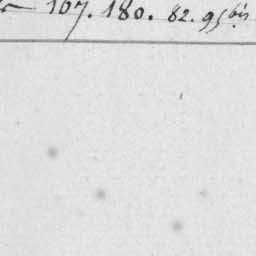 167. 180. 82. 95bis